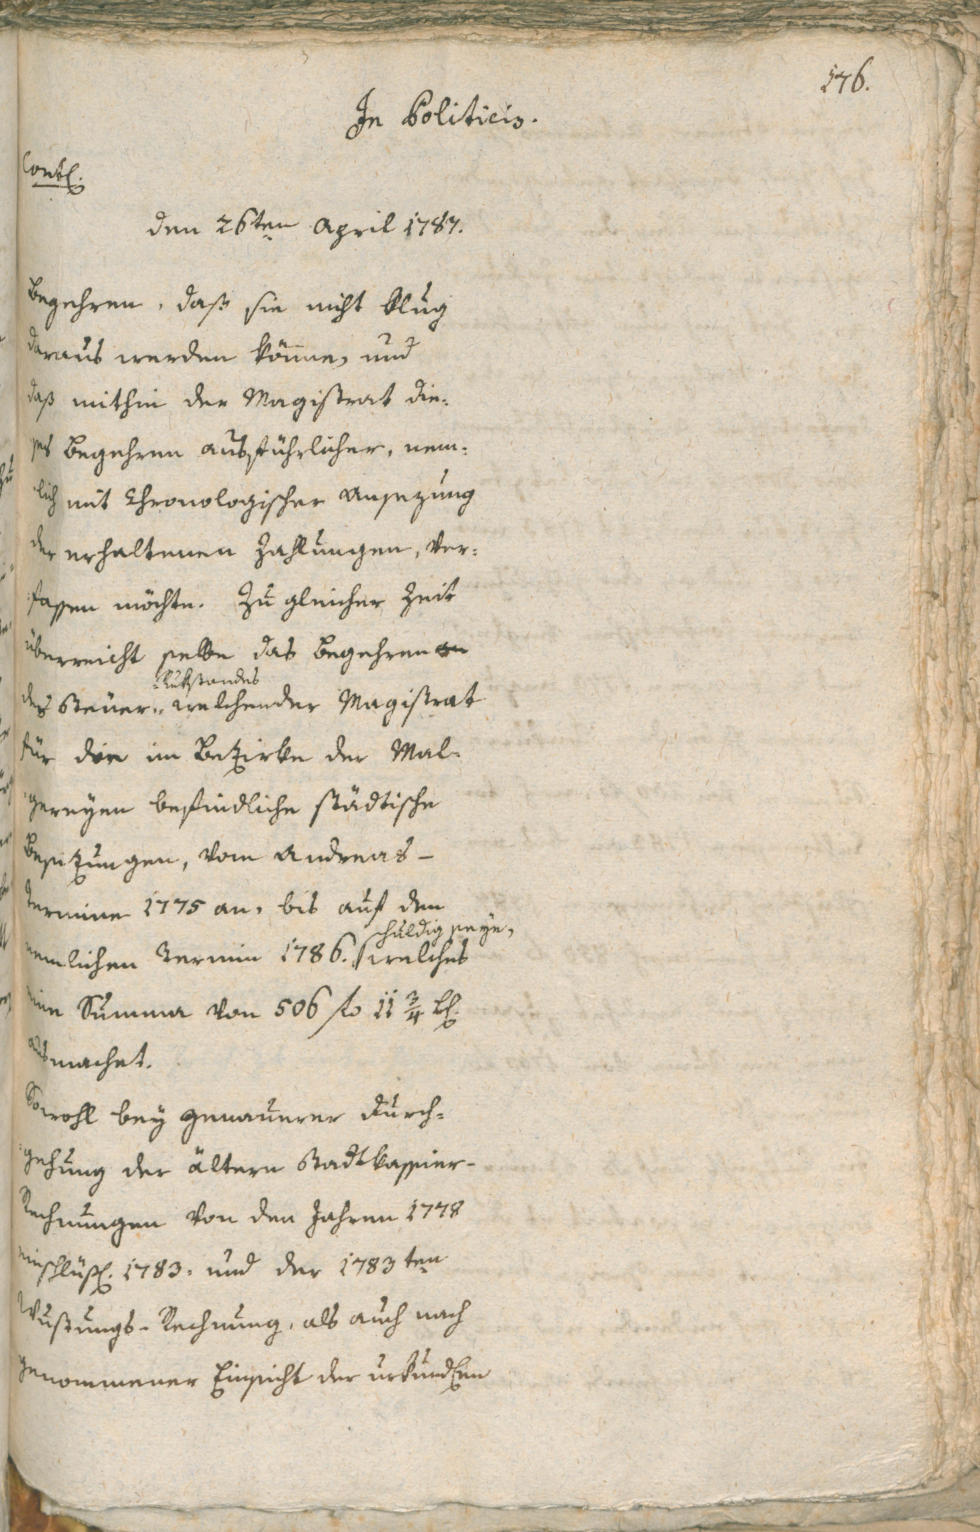 176.
In Politicis.
Contl.
den 26ten April 1787.
Begehren, daß sie nicht klug
daraus werden könne, und
daß mithin der Magistrat die-
ses Begehren ausführlicher, nem-
lich mit Chronologischer Ansezung
der erhaltenen Zahlungen, ver-
fassen möchte. Zu gleicher Zeit
überreicht selbe das Begehren
des Steuer-Rukstandes welchen der Magistrat
für die im Bezirke der Mal-
gereyen befindliche städtische
Besitzungen, vom Andreas-
Termine 1775 an, bis auf den
nemlichen Termin 1786. schuldig seye, welches
eine Summa von 506 fo 11 3/4 kl.
ausmachet.
Sowohl bey genauerer Durch-
gehung der ältern Stadtkassier-
Rechnungen von den Jahren 1778
einschlüßl. 1783. und der 1783ten
Wustungs-Rechnung, als auch nach
genommener Einsicht der urkundlen